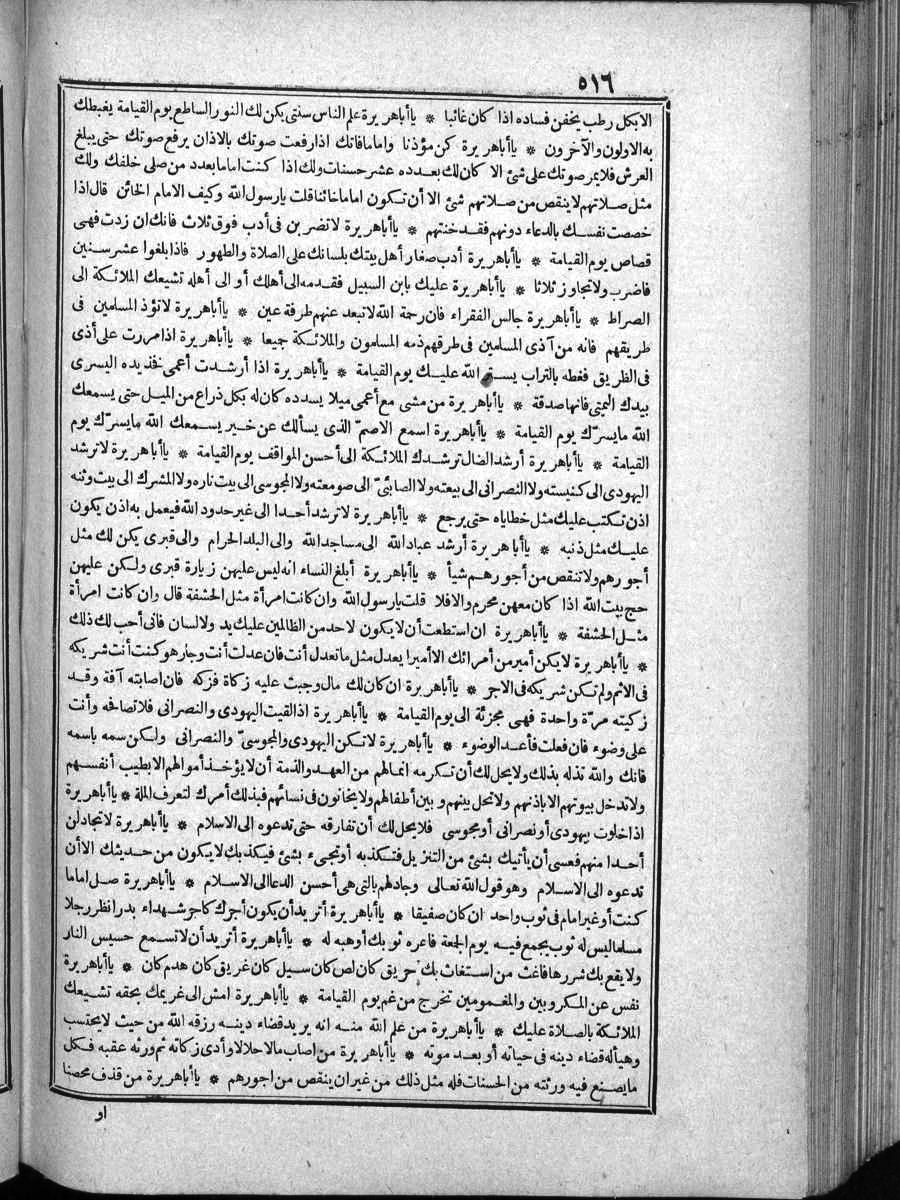 ٥١٦
الا بكل رطب يخفن فساده اذا كان غائبا * يا أباهريرة علم الناس سنتى يكن لك النور الساطع يوم القيامة يغبطك
به الاولون والآخرون * يا أباهريرة كن مؤذنا واماما فانك اذا رفعت صوتك بالاذان يرفع صوتك حتى يبلغ
العرش فلا يمر صوتك على شئ الا كان لك بعدده عشر حسنات ولك اذا كنت اماما بعدد من صلى خلفك ولك
مثل صلاتهم لا ينقص من صلاتهم شئ الا أن تكون اماما خائنا قلت يارسول الله وكيف الامام الخائن قال اذا
خصصت نفسك بالدعاء دونهم فقد خنتهم * يا أباهريرة لا تضربن فى أدب فوق ثلاث فانك ان زدت فهى
قصاص يوم القيامة * يا أباهريرة أدب صغار أهل بيتك بلسانك على الصلاة والطهور فاذا بلغوا عشر سنين
فاضرب ولا تجاوز ثلاثا * يا أباهريرة عليك بابن السبيل فقدمه الى أهلك أو الى أهله تشيعك الملائكة الى
الصراط * يا أباهريرة جالس الفقراء فان رحمة الله لا تبعد عنهم طرفة عين * يا أباهريرة لا تؤذ المسلمين فى
طريقهم فانه من آذى المسلمين فى طرقهم ذمه المسلمون والملائكة جميعا * يا أباهريرة اذا مررت على أذى
فى الطريق فغطه بالتراب يستر الله عليك يوم القيامة * يا أباهريرة اذا أرشدت أعمى فخذ يده اليسرى
بيدك اليمنى فانها صدقة * يا أباهريرة من مشى مع أعمى ميلا يسدده كان له بكل ذراع من الميل حتى يسمعك
الله ما يسرّك يوم القيامة * يا أباهريرة اسمع الاصمّ الذى يسألك عن خير يسمعك الله ما يسرّك يوم
القيامة * يا أباهريرة أرشد الضال ترشدك الملائكة الى أحسن المواقف يوم القيامة * يا أباهريرة لا ترشد
اليهودى الى كنيسته ولا النصرانى الى بيعته ولا الصابئىّ الى صومعته ولا المجوسى الى بيت ناره ولا المشرك الى بيت وثنه
اذن تكتب عليك مثل خطاياه حتى يرجع * يا أباهريرة لا ترشد أحدا الى غير حدود الله فيعمل به اذن يكون
عليك مثل ذنبه * يا أباهريرة أرشد عباد الله الى مساجد الله والى البلد الحرام والى قبرى يكن لك مثل
أجورهم ولا تنقص من أجورهم شيأ * يا أباهريرة أبلغ النساء انه ليس عليهن زيارة قبرى ولكن عليهن
حج بيت الله اذا كان معهن محرم والا فلا قلت يارسول الله وان كانت امرأة مثل الحشفة قال وان كانت امرأة
مثل الحشفة * يا أباهريرة ان استطعت أن لا يكون لاحد من الظالمين عليك يد ولا لسان فانى أحب لك ذلك
* يا أباهريرة لا يكن أمير من أمرائك الا أميرا يعدل مثل ما تعدل أنت فان عدلت أنت وجار هو كنت أنت شريكه
فى الاثم ولم تكن شريكه فى الاجر * يا أباهريرة ان كان لك مال وجبت عليه زكاة فزكه فان اصابته آفة وقد
زكيته مرّة واحدة فهى مجزئة الى يوم القيامة * يا أباهريرة اذا لقيت اليهودى والنصرانى فلا تصافحه وأنت
على وضوء فان فعلت فأعد الوضوء * يا أباهريرة لا تكن اليهودى والمجوسىّ والنصرانى ولكن سمه باسمه
فانك والله تذله بذلك ولا يحل لك أن تكرمه انما لهم من العهد والذمة أن لا يؤخذ أموالهم الا بطيب أنفسهم
ولا تدخل بيوتهم الا باذنهم ولا تحل بينهم وبين أطفالهم ولا يخانون فى نسائهم فبذلك أمرك لتعرف الملة * يا أباهريرة
اذا خلوت بيهودى أو نصرانى أو مجوسى فلا يحل لك أن تفارقه حتى تدعوه الى الاسلام * يا أباهريرة لا تجادلن
أحدا منهم فعسى أن يأتيك بشئ من التنزيل فتكذبه أو تجىء بشئ فيكذبك لا يكون من حديثك الا أن
تدعوه الى الاسلام وهو قول الله تعالى وجادلهم بالتى هى أحسن الدعا الى الاسلام * يا أباهريرة صل اماما
كنت أو غير امام فى ثوب واحد ان كان صفيقا * يا أباهريرة أتريد أن يكون أجرك كاجر شهداء بدر انظر رجلا
مسلما ليس له ثوب يجمع فيه يوم الجمعة فاعره ثوبك أو هبه له * يا أباهريرة أتريد أن لا تسمع حسيس النار
ولا يقع بك شررها فاغث من استغاث بك حريق كان لص كان سيل كان غريق كان هدم كان * يا أباهريرة
نفس عن المكروبين والمغمومين تخرج من غم يوم القيامة * يا أباهريرة امش الى غريمك بحقه تشيعك
الملائكة بالصلاة عليك * يا أباهريرة من علم الله منه انه يريد قضاء دينه رزقه الله من حيث لا يحتسب
وهيأ له قضاء دينه فى حياته أو بعد موته * يا أباهريرة من اصاب مالا حلالا وأدى زكاته ثم ورثه عقبه فكل
ما يصنع فيه ورثته من الحسنات فله مثل ذلك من غير ان ينقص من اجورهم * يا أباهريرة من قذف محصنا
او